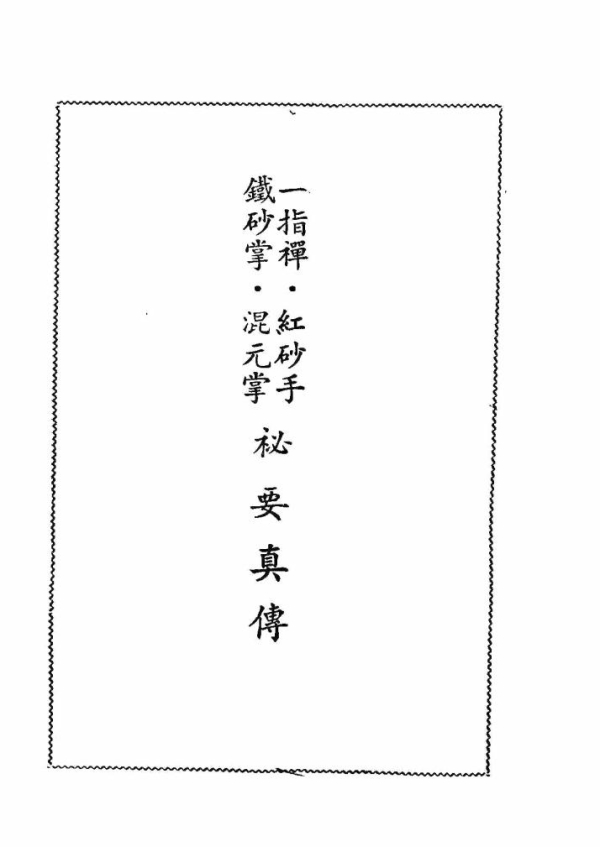 一指禪・紅砂手
鐵砂掌・混元掌
祕要真傳